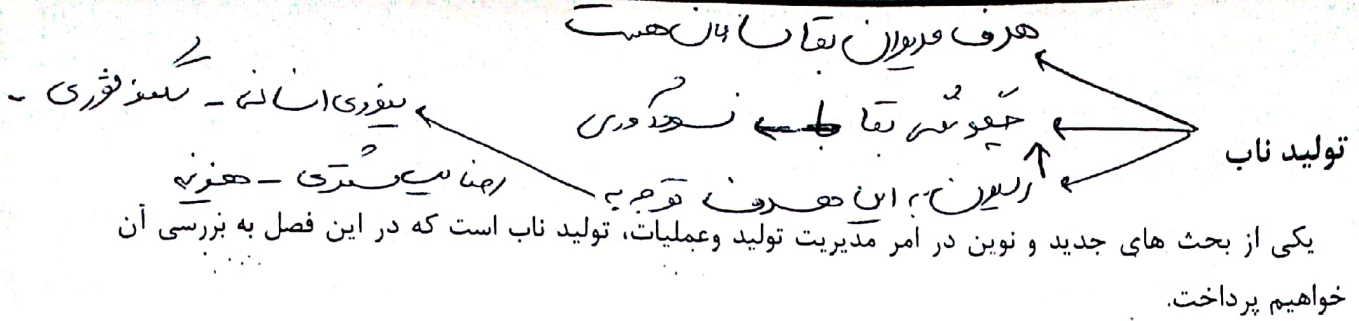 هدف مدیران بقا سازمان هست
چگونگی بقا سودآوری
نیروی انسانی -
رسیدن به این هدف توجه به
رضایت مشتری - هزینه
تولید ناب
یکی از بحث های جدید و نوین در امر مدیریت تولید وعملیات، تولید ناب است که در این فصل به بررسی آن
خواهیم پرداخت.